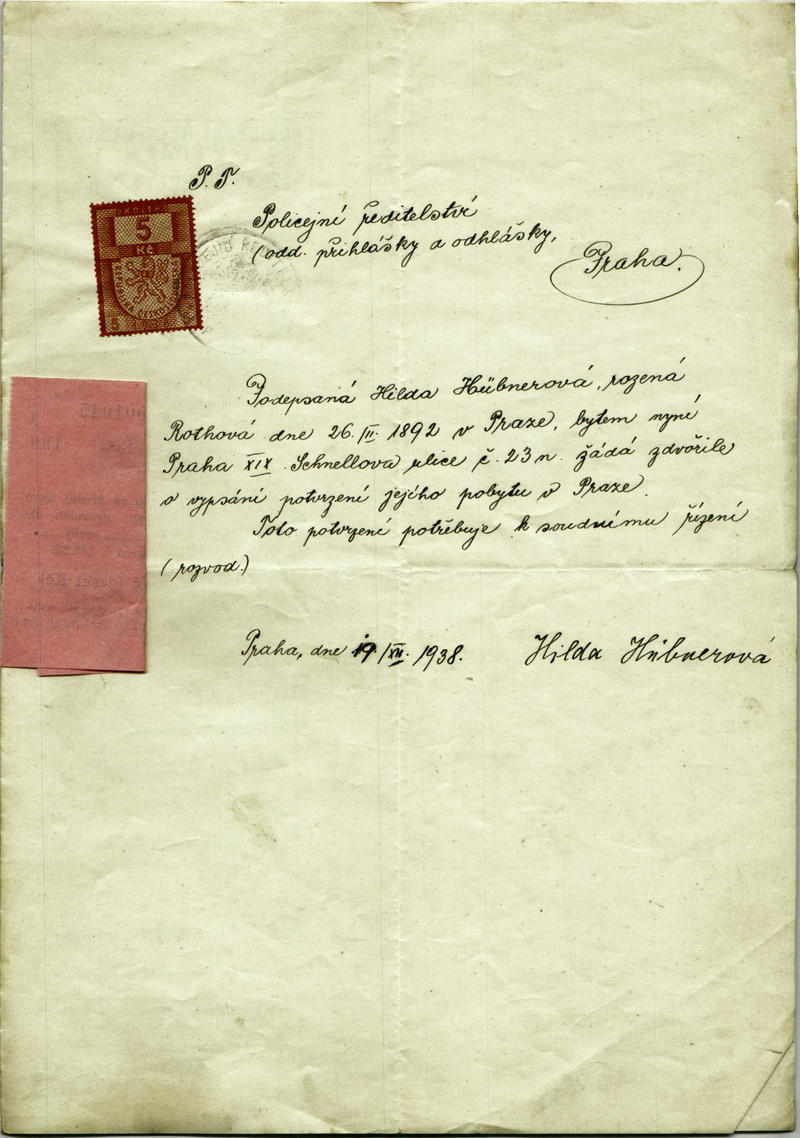 P. T.
KOLEK
5
Kč
Policejní ředitelství
(odd. přihlášky a odhlášky,
Praha.
5 5
Podepsaná Hilda Hübnerová, rozená
Rothová dne 26./II. 1892 v Praze, bytem nyní
Praha XIX. Schnellova ulice č. 23 n. žádá zdvořile
o vypsání potvrzení jejího pobytu v Praze.
Toto potvrzení potřebuje k soudnímu řízení
(rozvod.)
Praha, dne 19/XII. 1938.
Hilda Hübnerová